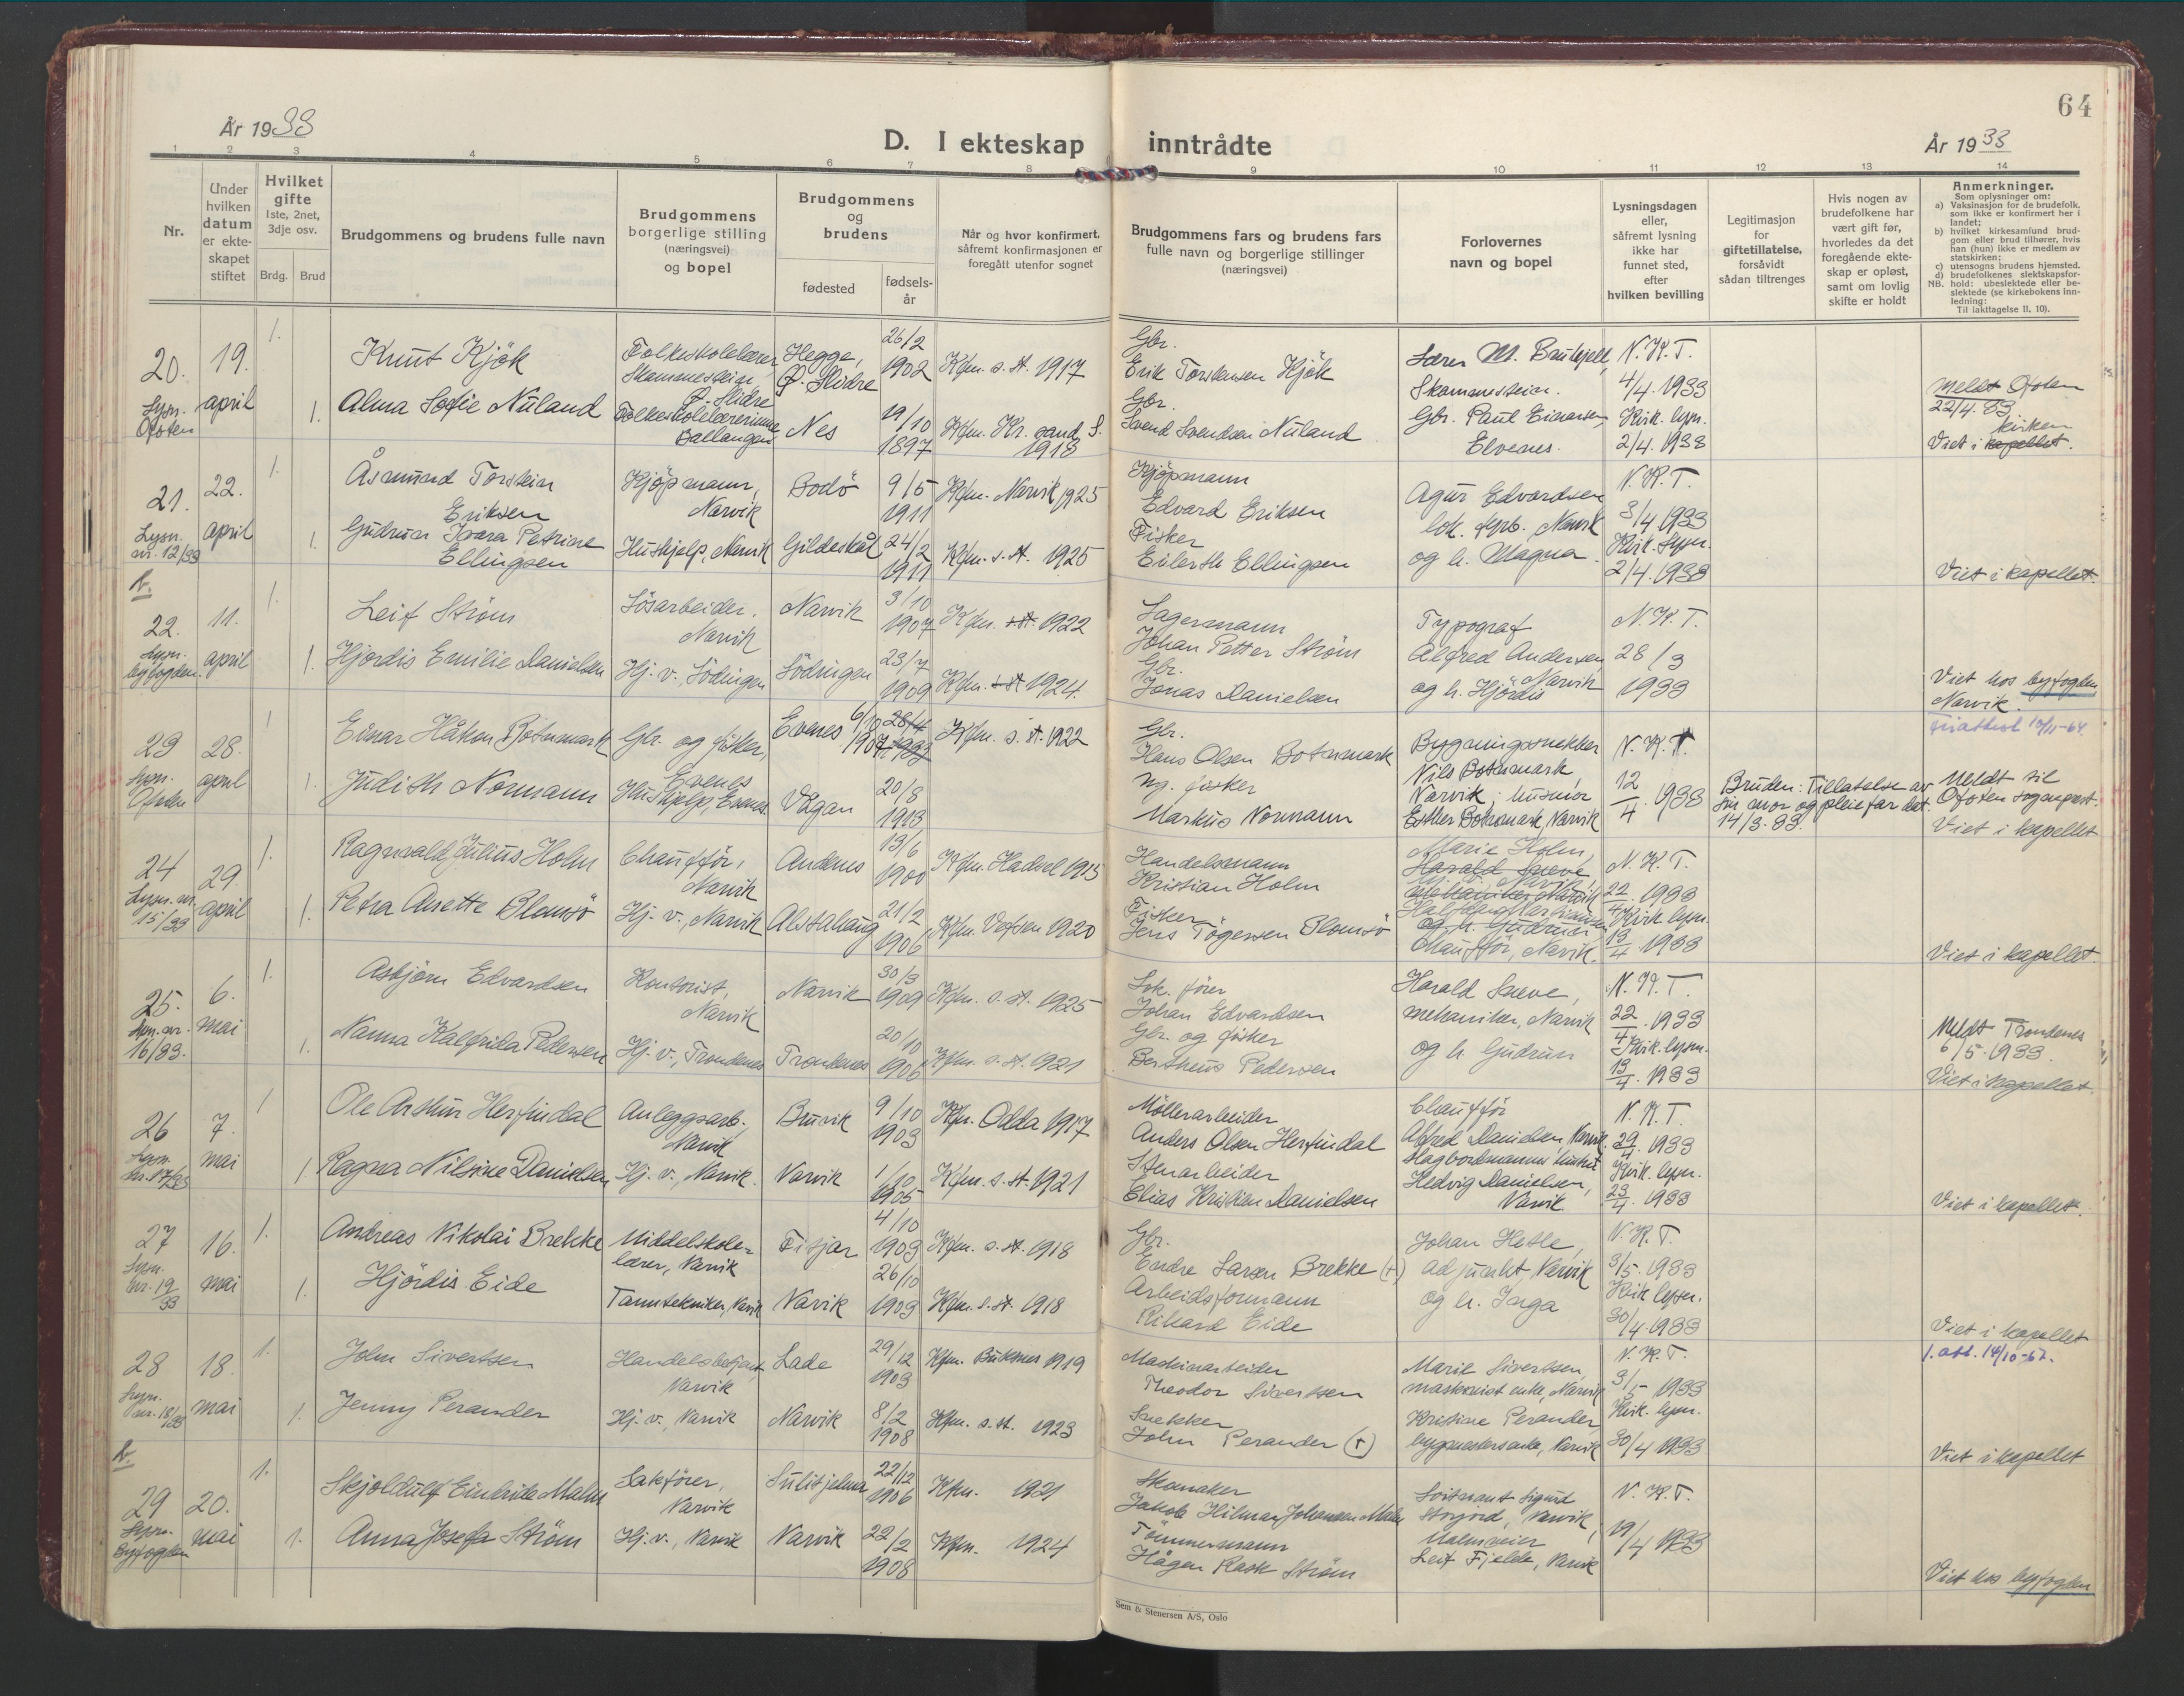 År 1933
D. I ekteskap inntrådte
År 1933
64
1 2 3 4 5 6 7 8 9 10 11 12 13 14
Nr.
Under hvilken datum er ekteskapet stiftet
Hvilket gifte
1ste, 2net, 3dje osv.
Brdg. Brud
Brudgommens og brudens fulle navn
Brudgommens borgerlige stilling (næringsvei) og bopel
Brudgommens og brudens
fødested
fødselsår
Når og hvor konfirmert, såfremt konfirmasjonen er foregått utenfor sognet
Brudgommens fars og brudens fars fulle navn og borgerlige stillinger (næringsvei)
Forlovernes navn og bopel
Lysningsdagen eller, såfremt lysning ikke har funnet sted, efter hvilken bevilling
Legitimasjon for giftetillatelse, forsåvidt sådan tiltrenges
Hvis nogen av brudefolkene har vært gift før, hvorledes da det foregående ekteskap er opløst, samt om lovlig skifte er holdt
Anmerkninger.
Som oplysninger om:
a) Vaksinasjon for de brudefolk, som ikke er konfirmert her i landet;
b) hvilket kirkesamfund brudgom eller brud tilhører, hvis han (hun) ikke er medlem av statskirken;
c) utensogns brudens hjemsted.
d) brudefolkenes slektskapsforhold: ubeslektede eller beslektede (se kirkebokens innledning:
NB. Til iakttagelse II, 10).
20. 19. april
Lysn. Ofoten
1. Knut Kjök
Folkeskolelærer, Skammestein, Ø. Slidre
Hegge, Ø. Slidre
26/2 1902
Kfm. s. st. 1917
Gbr. Erik Torstensen Kjök
Lærer M.
Skammestein.
N. K. T. 4/4. 1933
meldt Ofoten 22/4. 33
1. Alma Sofie Nuland
Folkeskolelærerinne Ballangen
Nes
19/10 1897
Kfm. Kr.sand S. 1913
Gbr. Svend Svendsen Nuland
Gbr. Paul Einarsen, Elvenes.
Kvik. lysn. 2/4. 1933
Viet i kapellet. kirken
21. 22. april
Lysn. nr. 12/33
1. Åsmund Torstein Eriksen
Kjöpmann, Narvik
Bodö
9/5 1911
Kfm. Narvik 1925
Kjöpmann Edvard Eriksen
Agur Edvardsen
lok. fyrb. Narvik
N. K. T. 3/4 1933
1. Gudrun Ivara Petrine Ellingsen
Hushjelp, Narvik
Gildeskål
24/2 1911
Kfm. s. st. 1925
Fisker Eilerth Ellingsen
og h. Magna
Kvik. lysn. 2/4. 1933
Viet i kapellet.
22. 11. april
Lysn. byfogden
1. Leif Ström
Lösarbeider, Narvik
Narvik
3/10 1907
Kfm. s. st. 1922
Lagermann Johan Petter Ström
Typograf Alfred Andersen Narvik
N. K. T. 28/3 1933
1. Hjördis Emilie Danielsen
Hj. v., Lödingen
Lödingen
23/7 1909
Kfm. s. st 1924.
Gbr. Jonas Danielsen
og h. Hjördis
Viet hos byfogden Narvik.
23 28. april
Lysn. Ofoten
1 Einar Håkon Botnmark
Gbr. og fisker, Evenes
Evenes
6/10 1907 28/4 1933
Kfm. s. st. 1922
Gbr. Hans Olsen Botnmark
Bygningssnekker Nils Botnmark, Narvik, husmor
N. K. T. 12/4. 1933
1. Judith Normann
Hushjelp, Evenes
Vågan
20/8 1913
ng. fisker Markus Normann
Esther Botnmark, Narvik
Bruden: Tillatelse av sin mor og pleiefar dat. 14/3. 33.
Meldt til Ofoten sogneprest.
Viet i kapellet
24 29. april
Lysn. nr. 15/33
1. Ragnvald Julius Holm
Chauffför, Narvik
Andenes
13/6 1900
Kfm. Hadsel 1915
Handelsmann Kristian Holm
Marie Holm,
Harald Sneve
mekaniker, Narvik
N. K. T. 22/4 1933
1. Petra Anette Blomsö
Hj. v., Narvik
Alstahaug
21/2 1906
Kfm. Vefsen 1920
Fisker Jens Tögersen Blomsö
og h. Gudrun
Chauffför, Narvik.
Kvik lysn. 13/4. 1933
Viet i kapellet.
25. 6. mai
Lysn. nr. 16/33.
1. Asbjörn Edvardsen
Kontorist, Narvik
Narvik
30/3 1909
Kfm. s. st. 1925
Lok. förer Johan Edvardsen
Harald Sneve,
mekaniker, Narvik
N. K. T. 22/4. 1933
1. Nanna Kalfrida Pedersen
Hj. v., Trondenes
Trondenes
20/10 1906
Kfm. s. st. 1921
Gbr. og fisker Bertheus Pedersen
og h Gudrun
Kvik. lysn. 13/4. 1933
Meldt Trondenes 6/5. 1933.
Viet i kapellet.
26 7. mai
Lysn. nr. 17/33
1 Ole Arthur Herfindal
Anleggsarb., Narvik
Bruvik
9/10 1903
Kfm. Odda 1917
Möllerarbeider Anders Olsen Herfindal
Chauffför Alfred Danielsen, Narvik,
N. K. T. 29/4. 1933
1 Ragna Nilsine Danielsen
Hj. v., Narvik.
Narvik
1/10 1905
Kfm. s. st. 1921
Stenarbeider Elias Kristian Danielsen
Hedvig Danielsen, Narvik
Kvik. lysn. 23/4. 1933
Viet i kapellet.
27 16. mai
Lysn. nr. 19/33
1. Andreas Nikolai Brekke
Middelskolelærer, Narvik
Fitjar
4/10 1903
Kfm. s. st. 1918
Gbr. Endre Larsen Brekke (+)
Johan Hetle,
adjunkt, Narvik
N. K. T. 3/5. 1933
1. Hjördis Eide
Tanntekniker, Narvik
Narvik
26/10 1903
Kfm. s. st. 1918
Arbeidsformann Rikard Eide
og h. Inga
Kvik lysn. 30/4 1933
Viet i kapellet
1. att. 14/10-67.
28 18. mai
Lysn. nr. 18/33
1. John Sivertsen
Handelsbetjent, Narvik
Lade
29/12 1903
Kfm. Buksnes 1919
Maskinarbeider Theodor Sivertsen
Marie Sivertsen,
maskinist enke, Narvik
N. K. T. 3/5 1933
1. Jenny Perander
Hj. v., Narvik
Narvik
8/2 1908
Kfm. s. st. 1923
Snekker John Perander (+)
Kristine Perander,
bygmestersenke, Narvik
Kvik. lysn. 30/4 1933
Viet i kapellet
29 20. mai
Lysn. Byfogden
1. Skjoldulf Eindride Malm
Sakförer, Narvik
Sulitjelma
22/12 1906
Kfm. 1921
Skomaker Jakob Hilmar Johansen Malm
Loitnant Sigurd Storjord, Narvik,
N. K. T. 19/4 1933
1. Anna Josefa Ström
Hj. v., Narvik
Narvik
22/2 1908
Kfm. 1924
Tömmermann Hågen Rask Ström
Malmveier Leif Fjelde, Narvik
Viet hos byfogden
Sem & Stenersen A/S, Oslo